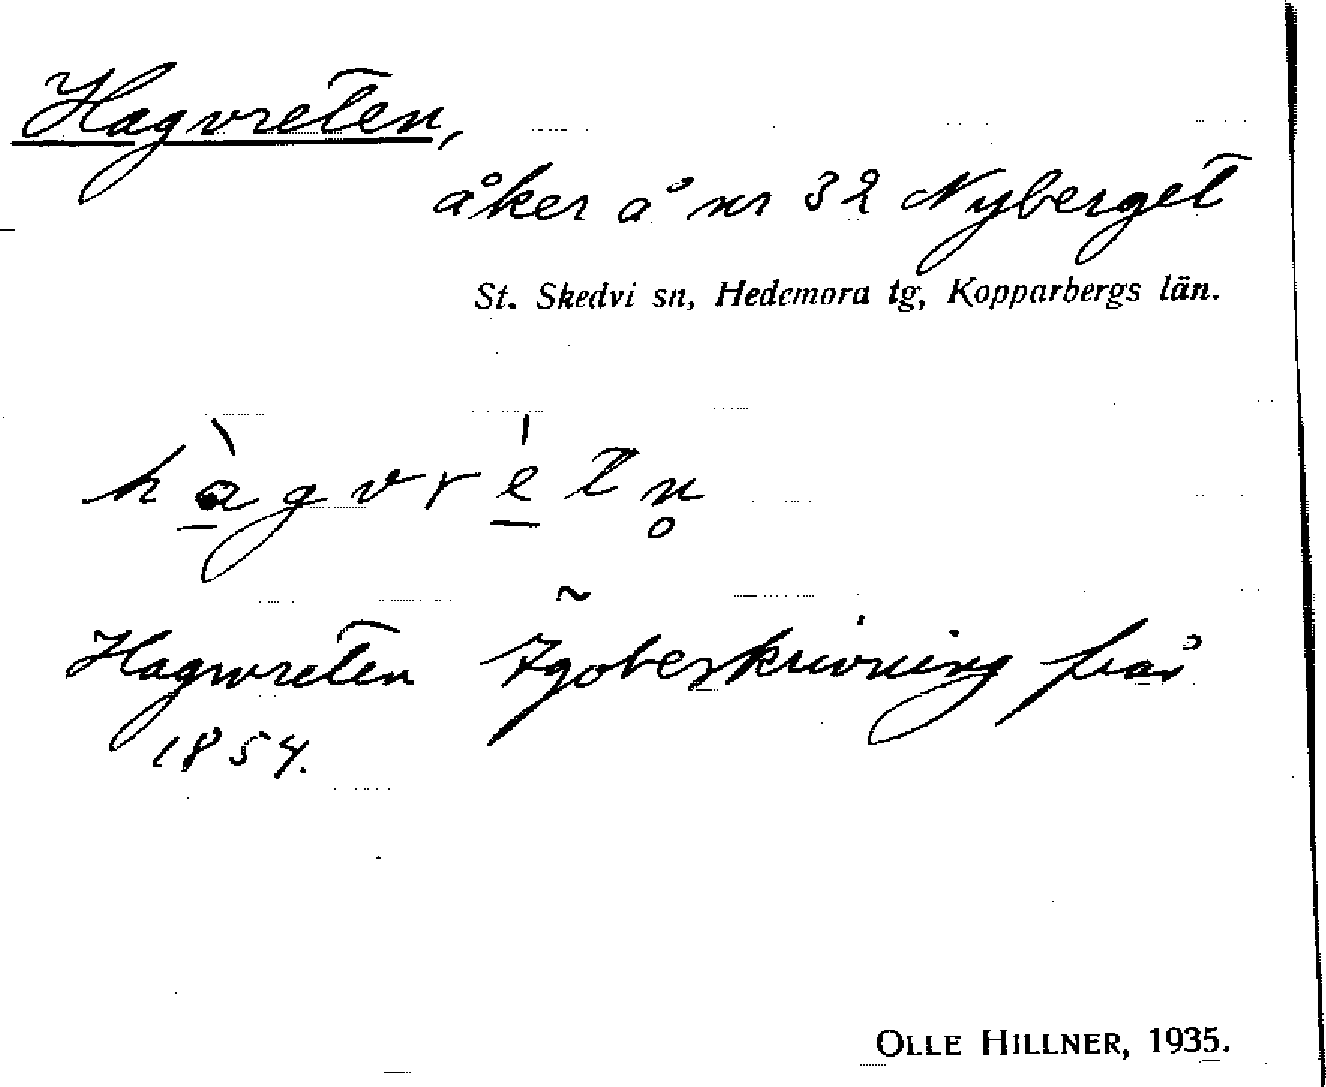 Hagvreten,
åker å nr 32 Nyberget
St. Skedvi sn, Hedemora tg, Kopparbergs län.
hàgvrétn̥
Hagvreten Ägobeskrivning från
1854.
OLLE HILLNER, 1935.